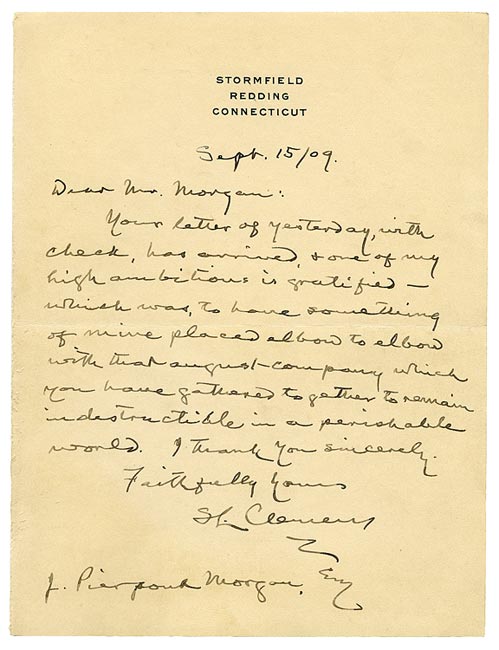 STORMFIELD
REDDING
CONNECTICUT
Sept. 15/09.
Dear Mr. Morgan:
Your letter of yesterday, with
check, has arrived, & one of my
high ambitions is gratified —
which was, to have something
of mine placed elbow to elbow
with that august company which
you have gathered together to remain
indestructible in a perishable
world. I thank you sincerely.
Faithfully Yours
SL Clemens
J. Pierpont Morgan, Esq